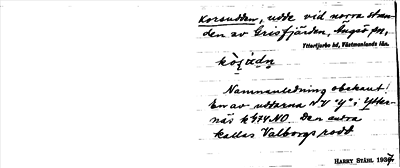 Korsudden, udde vid norra stran-
den av Grisfjärden, Ängsö sn,
Yttertjurbo hd, Västmanlands län.
Namnanledning obekant.
En av uddarna N V "Y" i Ytter-
näs k 474 NO. Den andra
kallas Valborgs rodd
HARRY STÅHL 1934